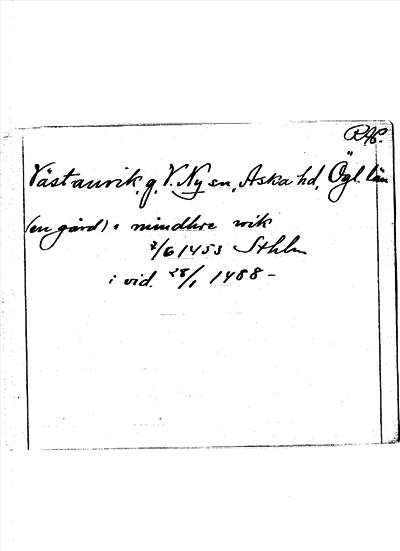 RAP.
Västanvik, g, V. Ny sn, Aska hd, Ögl. län
(en gård) i mindhre wik
2/6 1453 Sthlm
i vid. 28/1 1488 -